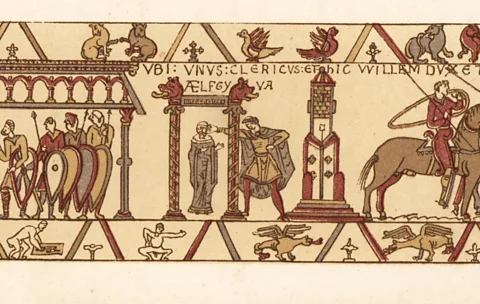 VBI: VNVS: CLERICVS: ET HIC WILLEM DVX ET
ÆLFGY VA